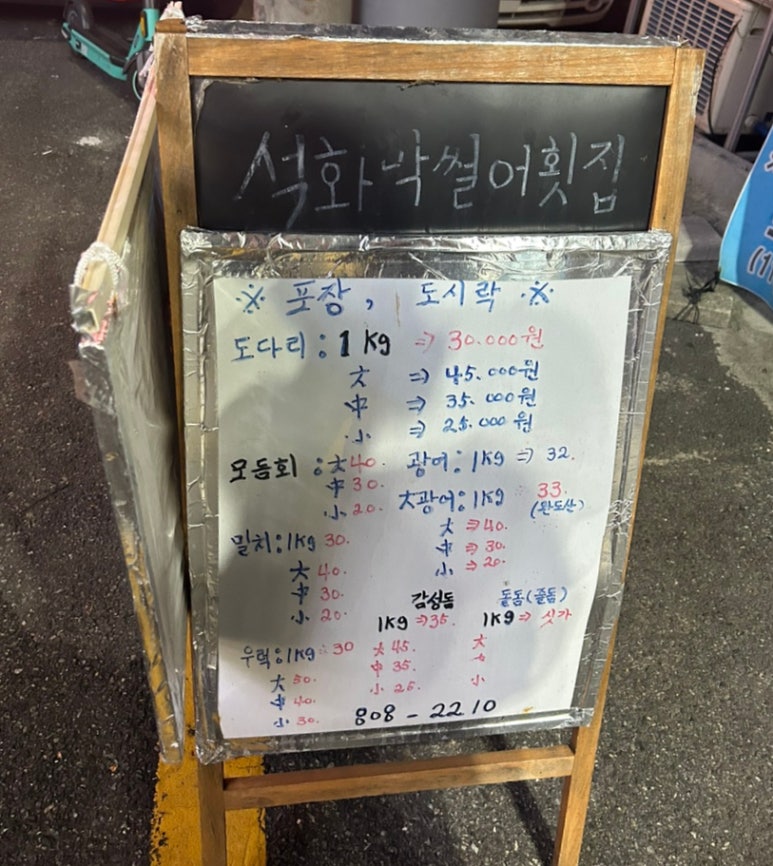 석화막썰어횟집
※ 포장, 도시락 ※
도다리 : 1Kg ⇒ 30.000원
大 ⇒ 45.000원
中 ⇒ 35.000원
小 ⇒ 25.000원
모듬회 : 大 40.
中 30.
小 20.
광어 : 1Kg ⇒ 32.
大광어 : 1Kg 33.
(완도산)
大 ⇒ 40.
中 ⇒ 30.
小 ⇒ 20.
밀치 : 1Kg 30.
大 40.
中 30.
小 20.
감성돔
1Kg ⇒ 35.
大 45.
中 35.
小 25.
돌돔(줄돔)
1Kg ⇒ 싯가
大
中
小
우럭 : 1Kg : 30
大 50.
中 40.
小 30.
808-2210